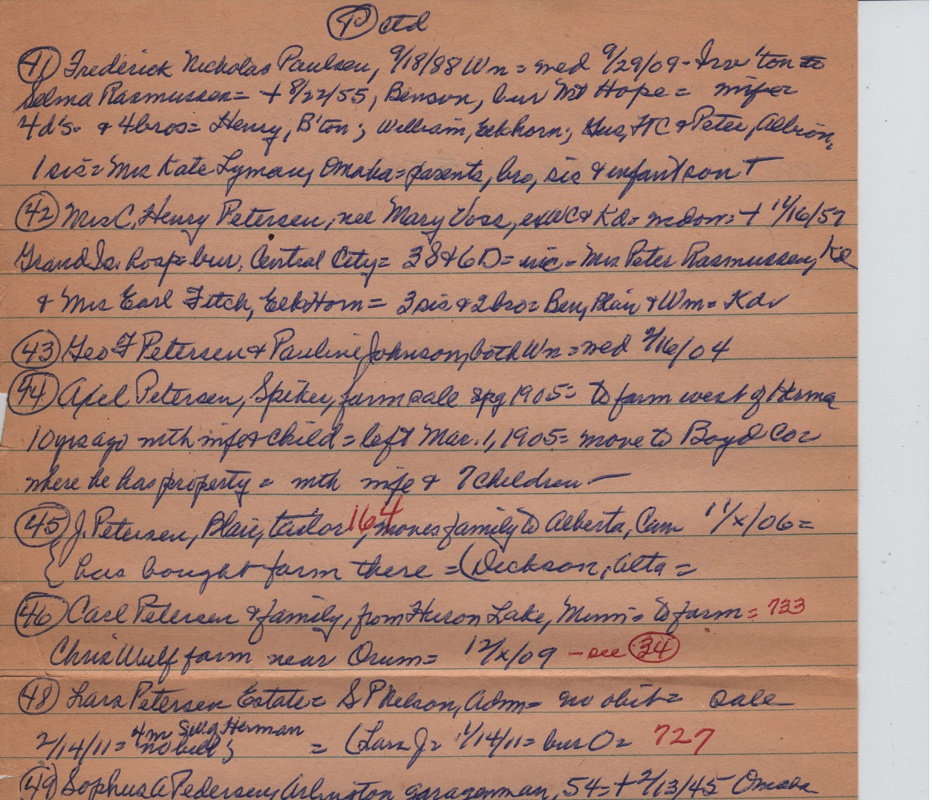 (P) ctd
(41) Frederick Nicholas Paulsen, 9/18/88 Wn = wed 9/29/09 - Irv'ton to
Selma Rasmussen = + 8/22/55, Benson, bur Mt Hope = wife
4d's. & 4bros = Henry, B'ton; William, Elkhorn; Gus, FtC & Peter, Albion,
1 sis = Mrs Kate Lyman, Omaha = parents, bro, sis & infant son +
(42) Mrs C. Henry Petersen, nee Mary Voss, ex WC & Kd = widow = + 11/16/59
Grand Is. hosp = bur. Central City = 3S & 6D = Mrs Peter Rasmussen, Ke
& Mrs Earl Fitch, ElkHorn = 3 sis & 2 bro = Ben, Blair & Wm = Kdv
(43) Geo F Petersen & Pauline Johnson, both Wn = wed 2/16/04
(44) Axel Petersen, Spiker, farm sale spg 1905 = to farm west of Herma
10 yrs ago with wife & child = left Mar. 1, 1905 = move to Boyd Co =
where he has property = with wife & 7 children -
(45) J. Petersen, Blair, tailor 164, moves family to Alberta, Can 11/x/06 =
{ has bought farm there = (Dickson, Alta =
(46) Carl Petersen & family, from Heron Lake, Minn = to farm = 733
Chris Wulf farm near Orum = 12/x/09 - see (34)
(48) Lars Petersen Estate = S P Nelson, Adm = no obit = sale
2/14/11 = 4m SW of Herman
no bill } = (Lars J = 1/14/11 = bur O = 727
(49) Sophus A Pedersen, Arlington garageman, 54 = + 2/13/45 Omaha